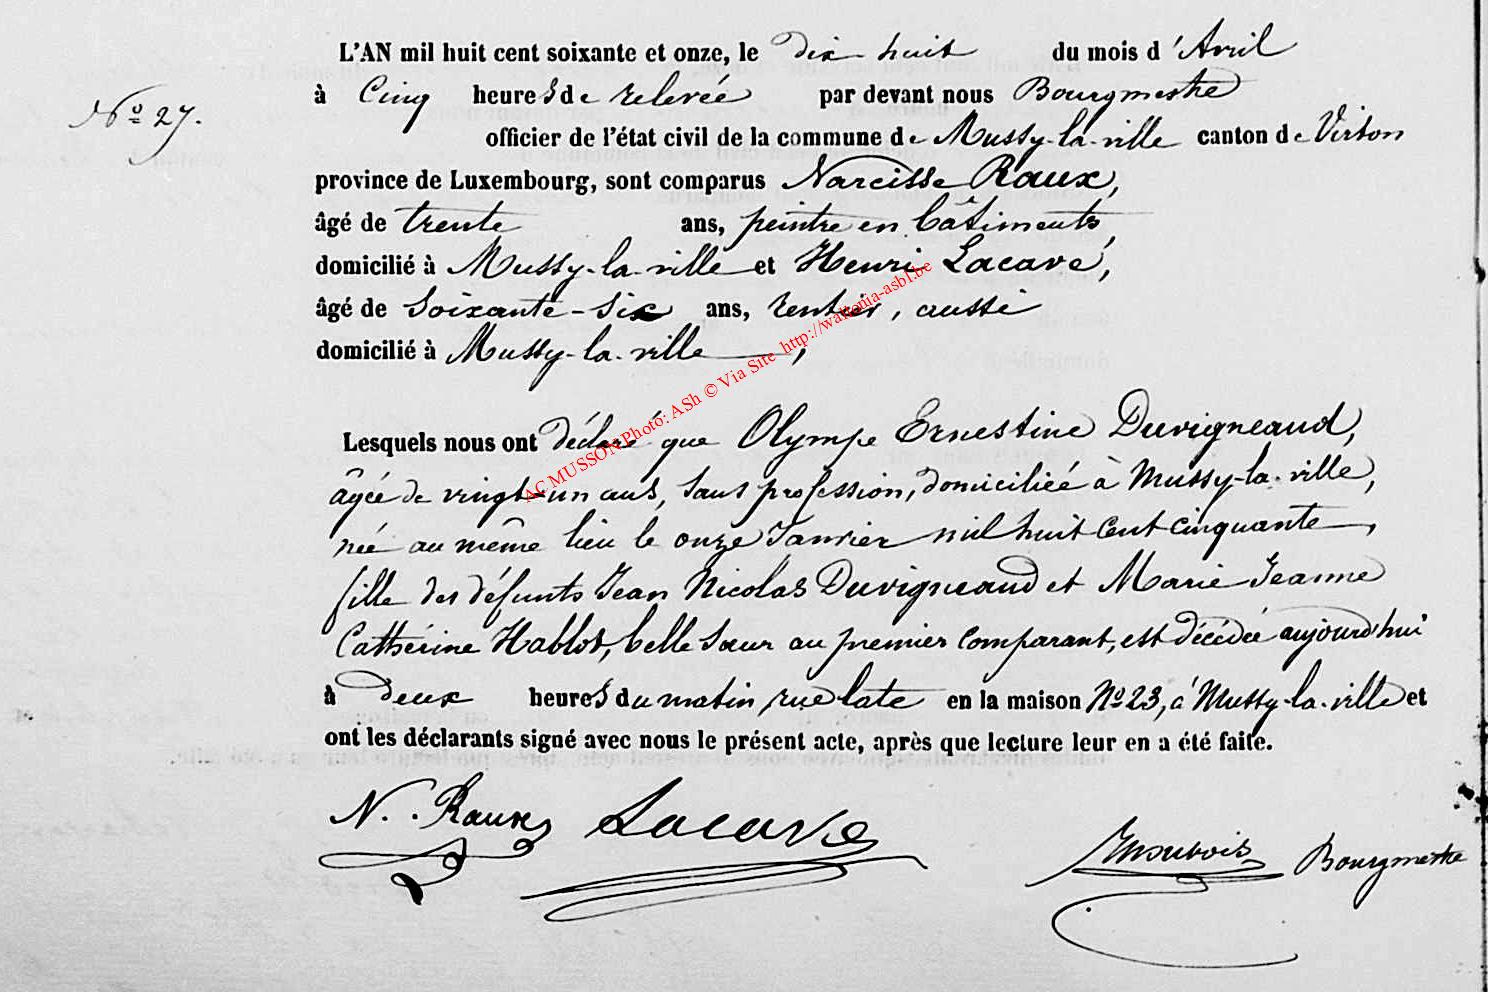 L'AN mil huit cent soixante et onze, le dix huit du mois d'Avril
à Cinq heures de relevée par devant nous Bourgmestre
N° 27.
officier de l'état civil de la commune de Mussy-la-ville canton de Virton
province de Luxembourg, sont comparus Narcisse Raux,
âgé de trente ans, peintre en bâtiments,
domicilié à Mussy-la-ville et Henri Lacave,
âgé de soixante-six ans, rentier, aussi
domicilié à Mussy-la-ville,
AC MUSSON Photo: ASh © Via Site http://wallonia-asbl.be
Lesquels nous ont déclaré que Olympe Ernestine Duvigneaud,
âgée de vingt-un ans, sans profession, domiciliée à Mussy-la-ville,
née au même lieu le onze Janvier mil huit cent cinquante,
fille des défunts Jean Nicolas Duvigneaud et Marie Jeanne
Cathérine Hablot, belle sœur au premier comparant, est décédée aujourd'hui
à deux heures du matin, rue late en la maison N° 23, à Mussy-la-ville et
ont les déclarants signé avec nous le présent acte, après que lecture leur en a été faite.
N. Raux Lacave
Bourgmestre